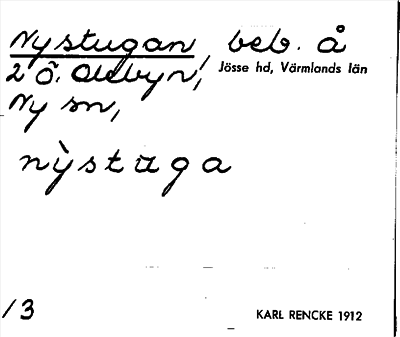 Nystugan, beb. å
2 Ö. Årebyn, Jösse hd, Värmlands län
Ny sn,
nỳstuga
/3 KARL RENCKE 1912